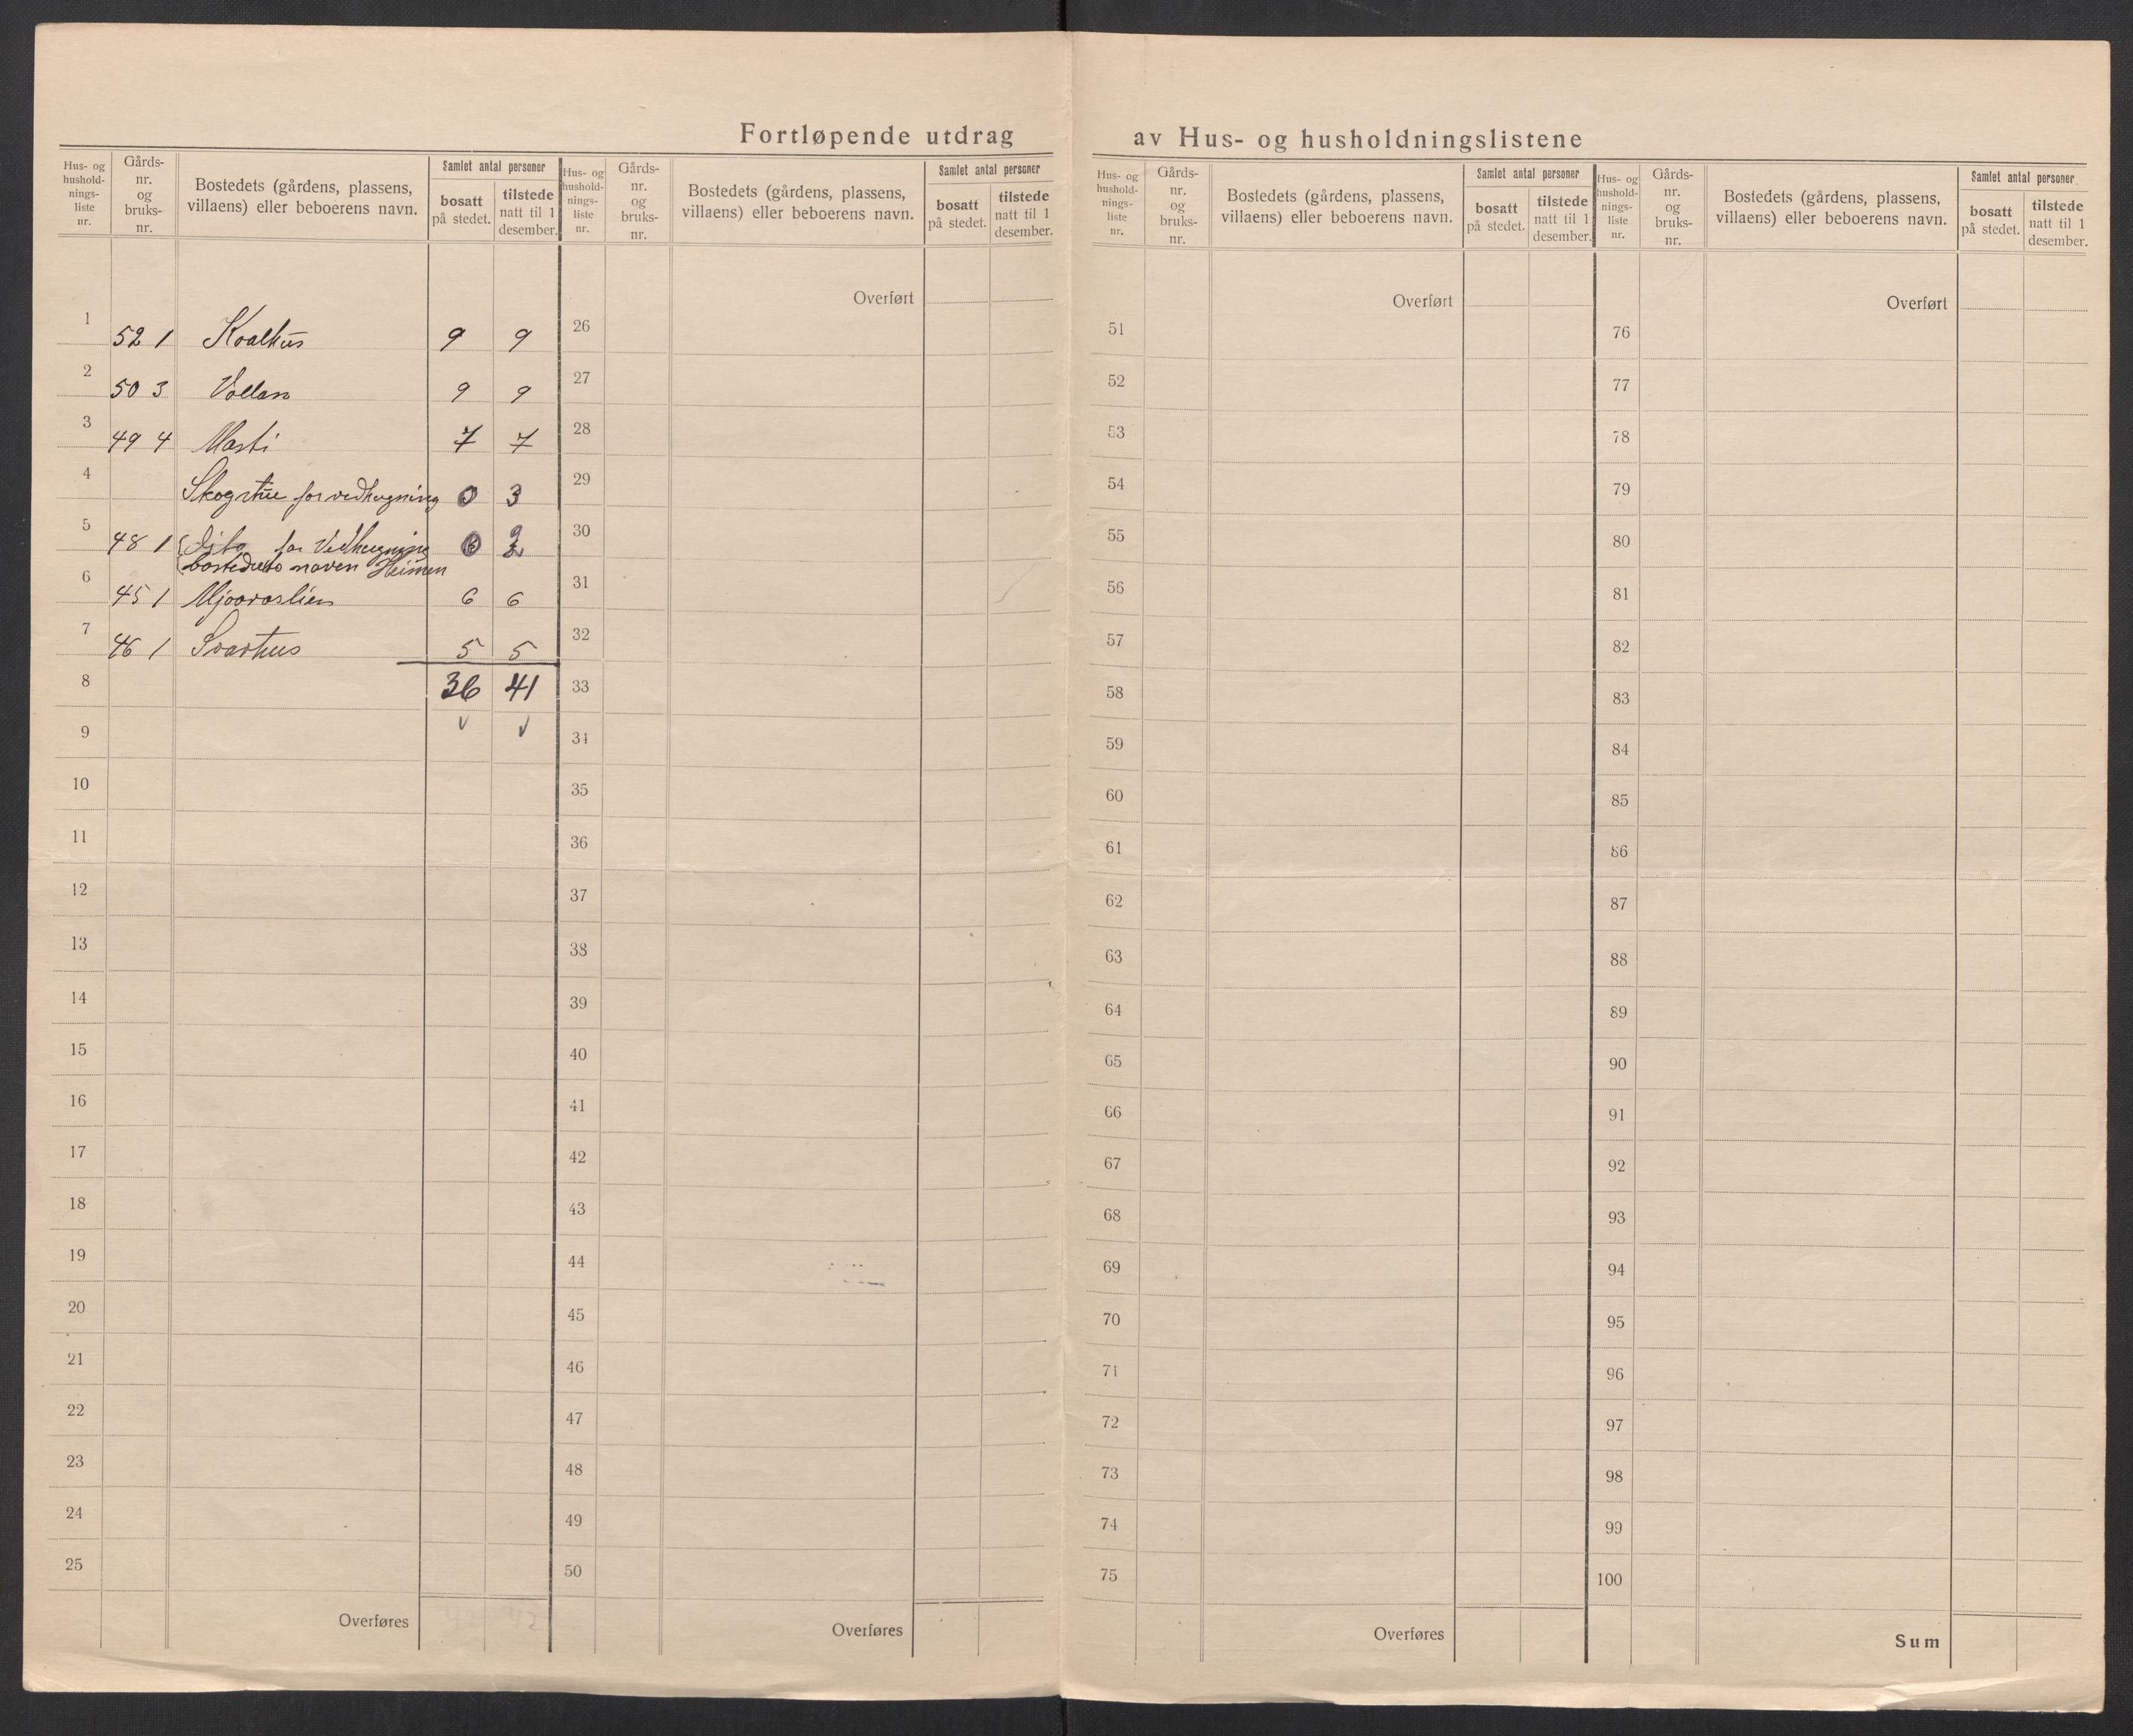 Fortløpende utdrag av Hus- og husholdningslistene
Hus- og husholdnings-liste nr.
Gårds-nr. og bruks-nr.
Bostedets (gårdens, plassens, villaens) eller beboerens navn.
Samlet antal personer
bosatt på stedet.
tilstede natt til 1 desember.
1 52 1 Kvalhus 9 9
2 50 3 Vollan 9 9
3 49 4 Masti 7 7
4 Skogstue for vedhugning 0 3
5 48 1 for Vedhugning 0 2
bostedets naven Heimen
6 45 1 Mjovaslien 6 6
7 46 1 Svarhus 5 5
8 36 41
9
10
11
12
13
14
15
16
17
18
19
20
21
22
23
24
25
Overføres
Hus- og husholdnings-liste nr.
Gårds-nr. og bruks-nr.
Bostedets (gårdens, plassens, villaens) eller beboerens navn.
Samlet antal personer
bosatt på stedet.
tilstede natt til 1 desember.
Overført
26
27
28
29
30
31
32
33
34
35
36
37
38
39
40
41
42
43
44
45
46
47
48
49
50
Overføres
Hus- og husholdnings-liste nr.
Gårds-nr. og bruks-nr.
Bostedets (gårdens, plassens, villaens) eller beboerens navn.
Samlet antal personer
bosatt på stedet.
tilstede natt til 1 desember.
Overført
51
52
53
54
55
56
57
58
59
60
61
62
63
64
65
66
67
68
69
70
71
72
73
74
75
Overføres
Hus- og husholdnings-liste nr.
Gårds-nr. og bruks-nr.
Bostedets (gårdens, plassens, villaens) eller beboerens navn.
Samlet antal personer
bosatt på stedet.
tilstede natt til 1 desember.
Overført
76
77
78
79
80
81
82
83
84
85
86
87
88
89
90
91
92
93
94
95
96
97
98
99
100
Sum